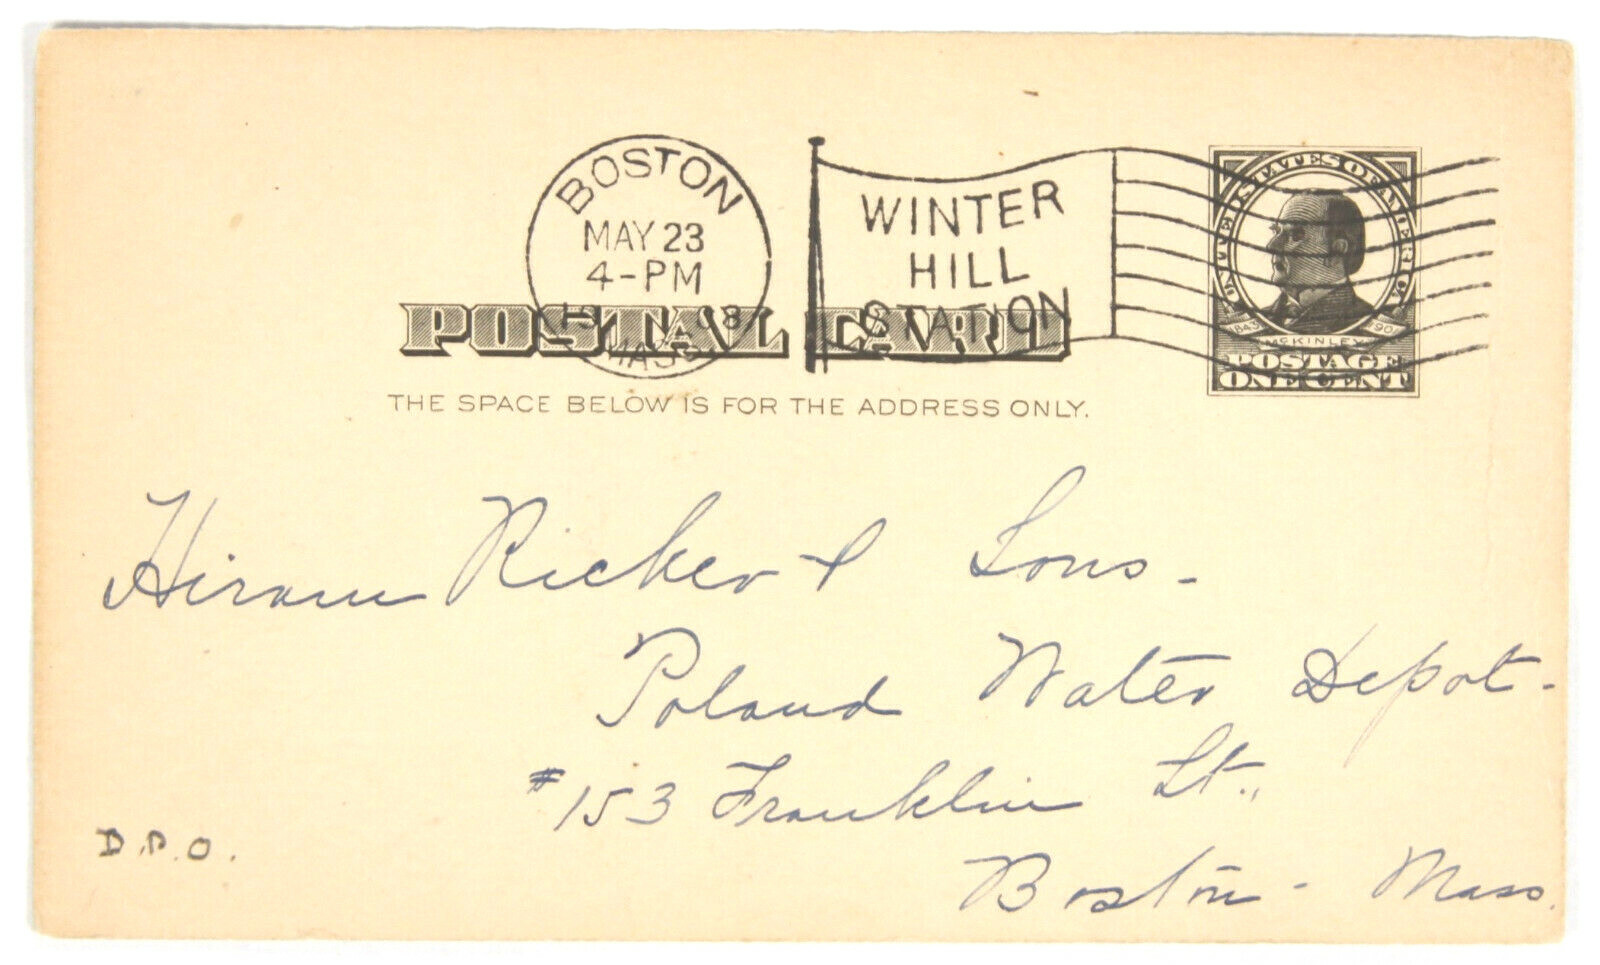 BOSTON
MAY 23
4-PM
MASS
WINTER
HILL
STATION
UNITED STATES OF AMERICA
1843 1901
McKINLEY
POSTAGE
ONE CENT
POSTAL CARD
THE SPACE BELOW IS FOR THE ADDRESS ONLY.
Hiram Ricker & Sons -
Poland Water Depot -
#153 Franklin St.,
Boston - Mass.
D.P.O.